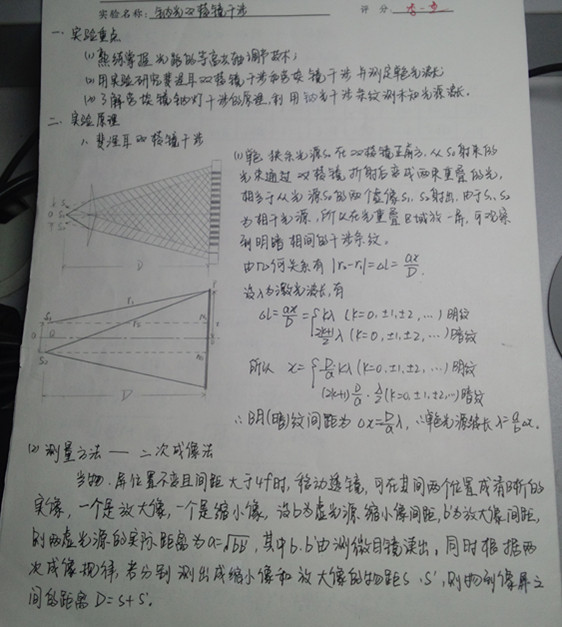 实验名称: 钠光双棱镜干涉 评分
一. 实验重点
(1) 熟练掌握光路的等高共轴调节技术;
(2) 用实验研究菲涅耳双棱镜干涉和劳埃镜干涉并测定单色光波长;
(3) 了解劳埃镜钠灯干涉的原理, 利用钠光干涉条纹测未知光波长.
二. 实验原理
1. 菲涅耳双棱镜干涉
(1) 单色 狭条光源S₀在双棱镜正前方, 从S₀射来的
光束通过双棱镜折射后变成两束重叠的光,
相当于从光源S₀的两个虚像S₁、S₂射出. 由于S₁、S₂
为相干光源, 所以在光重叠区域放一屏, 可观察
到明暗相间的干涉条纹.
由几何关系有 |r₂-r₁|=ΔL=ax/D.
设λ为激光波长, 有
ΔL=ax/D={kλ (k=0, ±1, ±2, …) 明纹
(2k+1)/2 λ (k=0, ±1, ±2, …) 暗纹
所以 x={D/a kλ (k=0, ±1, ±2, …) 明纹
(2k+1) D/a · λ/2 (k=0, ±1, ±2, …) 暗纹
∴明(暗)纹间距为 Δx=D/a λ, ∴单色光源波长 λ=a/D Δx.
S₁ r₁ r₂ P
S₂ D
D
(2) 测量方法 — 二次成像法
当物、屏位置不变且间距大于4f时, 移动透镜, 可在其间两个位置成清晰的
实像, 一个是放大像, 一个是缩小像, 设b为虚光源缩小像间距, b'为放大像间距,
则两虚光源的实际距离为a=√bb', 其中b、b'由测微目镜读出, 同时根据两
次成像规律, 若分别测出成缩小像和放大像的物距S、S', 则物到像屏之
间的距离 D=S+S'.